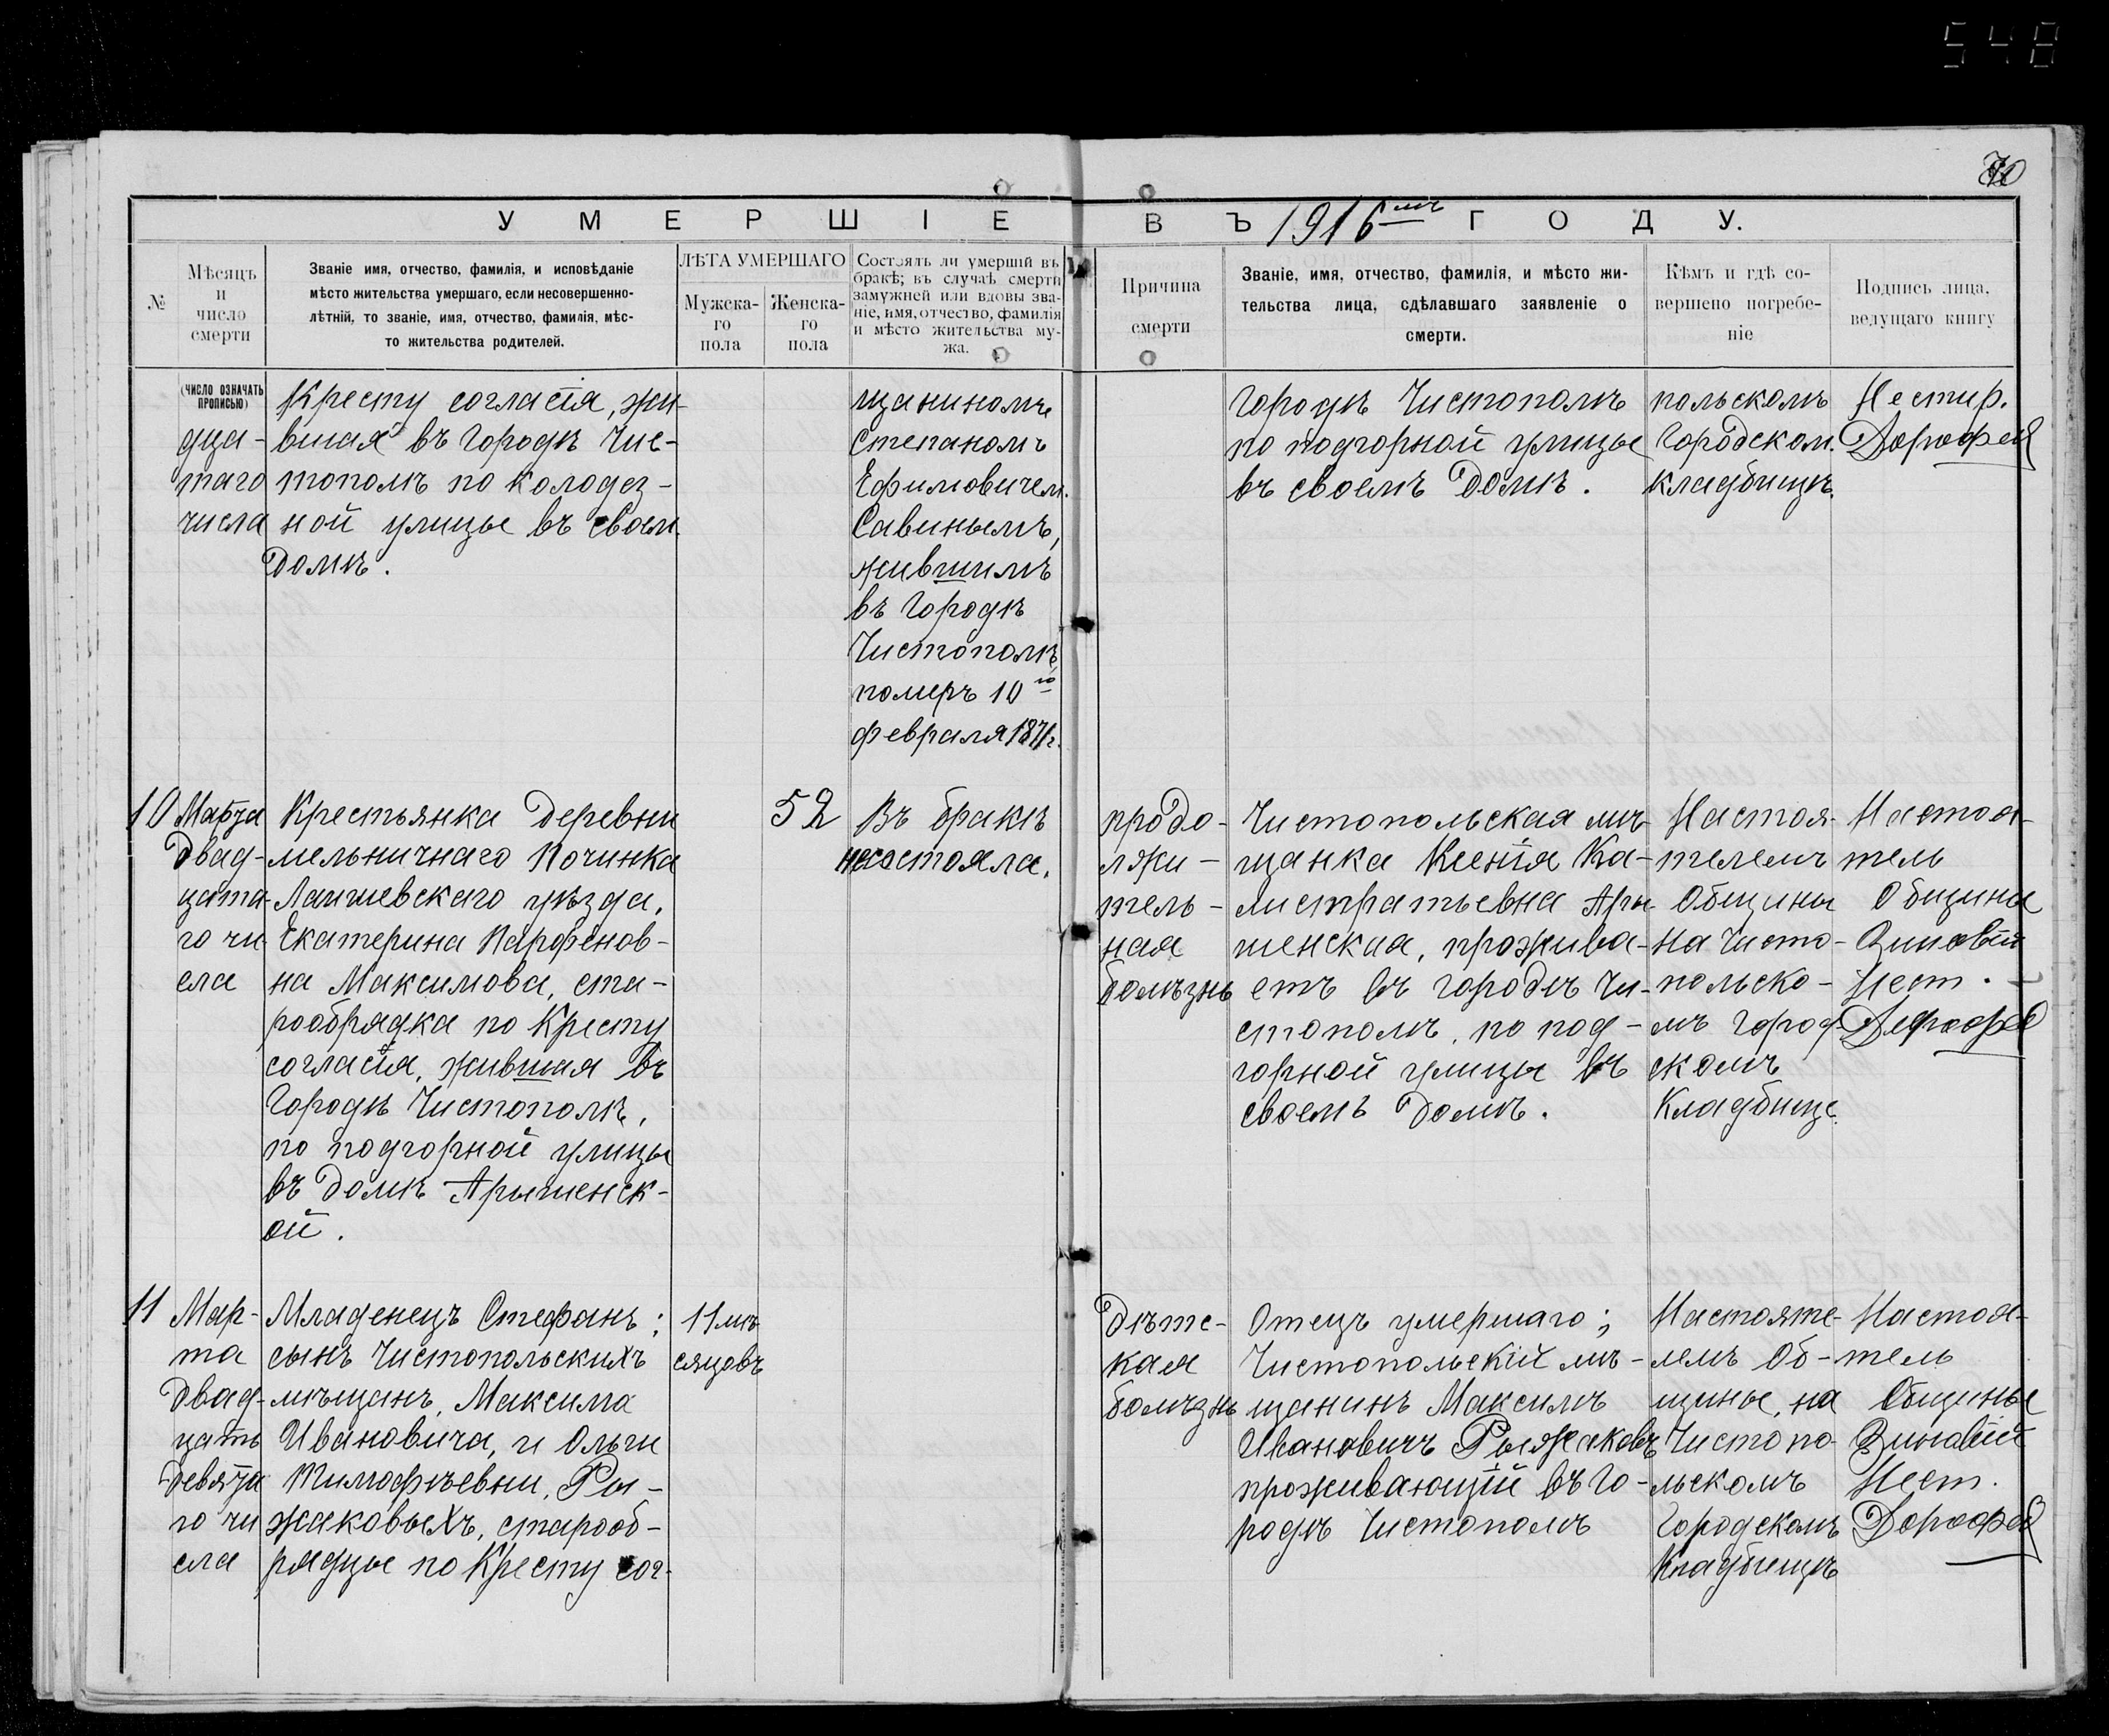 548
70
УМЕРШІЕ ВЪ 1916мъ ГОДУ.
№
Мѣсяцъ
и
число
смерти
Званіе имя, отчество, фамилія, и исповѣданіе
мѣсто жительства умершаго, если несовершенно-
лѣтній, то званіе, имя, отчество, фамилія, мѣс-
то жительства родителей.
ЛѢТА УМЕРШАГО
Мужска-
го
пола
Женска-
го
пола
Состоялъ ли умершій въ
бракѣ; въ случаѣ смерти
замужней или вдовы зва-
ніе, имя, отчество, фамилія
и мѣсто жительства му-
жа.
Причина
смерти
Званіе, имя, отчество, фамилія, и мѣсто жи-
тельства лица, сдѣлавшаго заявленіе о
смерти.
Кѣмъ и гдѣ со-
вершено погребе-
ніе
Подпись лица,
ведущаго книгу
(ЧИСЛО ОЗНАЧАТЬ
ПРОПИСЬЮ)
дца-
таго
числа
Кресту согласія, жи-
вшая въ Городѣ Чис-
тополѣ по колодез-
ной улицы въ своем.
Домѣ.
щаниномъ
Степаномъ
Ефимовичем.
Савинымъ,
жившимъ
въ Городѣ
Чистополѣ,
померъ 10го
февраля 1871г.
Городѣ Чистополѣ
по подгорной улицы
въ своемъ Домѣ.
польскомъ
Городском.
кладбищѣ.
Нестер.
Дорофей
10
Марта
Двад-
цата-
го чи
сла
Крестьянка Деревни
мельничнаго Починка
Лаишевскаго уѣзда,
Екатерина Парфенов-
на Максимова, ста-
рообрядка по Кресту
согласія, жившая въ
Городѣ Чистополѣ,
по подгорной улицы
въ Домѣ Арышенск-
ой.
52
Въ бракѣ
несостояла.
продо-
лжи-
тель-
ная
болѣзнь
Чистопольская мѣ-
щанка Ксенія Ка-
листратьевна Ары-
шенская, прожива-
етъ въ городѣ Чи-
стополѣ, по под-
горной улицы въ
своемъ Домѣ.
Настоя-
телемъ
Общины
на Чисто-
польско-
мъ Город-
скомъ
Кладбище.
Настоя-
тель
Общины
Зиновій
Нест.
Дорофе
11
Мар-
та
Двад-
цать
Девята
го чи
сла
Младенецъ Стефанъ;
сынъ Чистопольскихъ
мѣщанъ, Максима
Ивановича, и Ольги
Тимофѣевни, Ры-
жаковыхъ, старооб-
рядцы по Кресту сог-
11 мѣ
сяцовъ
Дѣтс-
кая
болѣзнь
Отецъ умершаго;
Чистопольскій мѣ-
щанинъ Максимъ
Ивановичъ Рыжаковъ
проживающій въ Го-
родѣ Чистополѣ
Настояте-
лемъ Об-
щины, на
Чистопо-
льскомъ
Городскомъ
Кладбищѣ
Настоя-
тель
Общины
Зиновій
Нест.
Дорофей